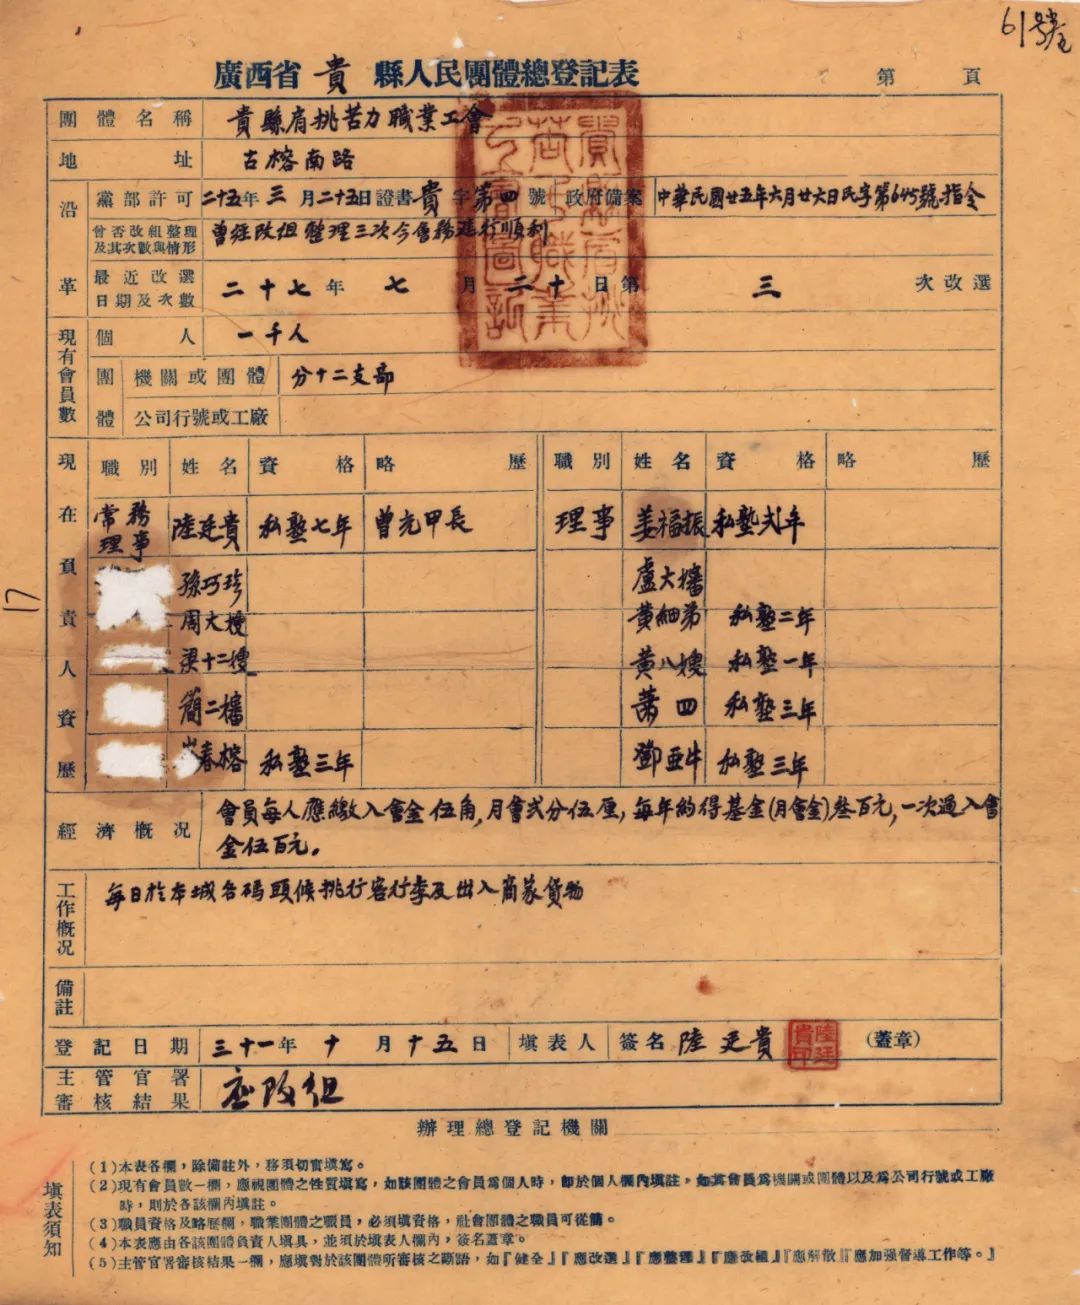 61號卷
廣西省 貴 縣人民團體總登記表
第 頁
團體名稱 貴縣肩挑苦力職業工會
地址 古榕南路
沿革
黨部許可 二十五年三月二十五日證書貴字第四號 政府備案 中華民國廿五年六月廿六日民字第645號指令
曾否改組整理及其次數與情形 曾經改組整理三次今會務進行順利
最近改選日期及次數 二十七年七月二十日第三次改選
現有會員數
個人 一千人
團體 機關或團體 分十二支部
公司行號或工廠
現在負責人資歷
職別 姓名 資格 略歷 職別 姓名 資格 略歷
常務理事 陸廷貴 私塾七年 曾充甲長 理事 姜福振 私塾弍年
孫巧珍 盧大嬸
周大嫂 黃細弟 私塾二年
梁十二嫂 黃八嫂 私塾一年
簡二嬸 蕭四 私塾三年
春榕 私塾三年 鄧亜牛 私塾三年
經濟概況 會員每人應繳入會金伍角,月會弍分伍厘,每年約得基金(月會金)叁百元,一次過入會
金伍百元。
工作概況 每日於本城各碼頭候挑行客行李及出入商家貨物
備註
登記日期 三十一年十月十五日 填表人 簽名 陸廷貴 陸廷貴印 (蓋章)
主管官署審核結果 應改組
辦理總登記機關
17
填表須知
(1)本表各欄,除備註外,務須切實填寫。
(2)現有會員數一欄,應視團體之性質填寫,如該團體之會員為個人時,即於個人欄內填註。如其會員為機關或團體以及為公司行號或工廠
時,則於各該欄內填註。
(3)職員資格及略歷欄,職業團體之職員,必須填資格,社會團體之職員可從簡。
(4)本表應由各該團體負責人填具,並須於填表人欄內,簽名蓋章。
(5)主管官署審核結果一欄,應填對於該團體所審核之斷語,如『健全』『應改選』『應整理』『應改組』『應解散』『應加強督導工作等。』